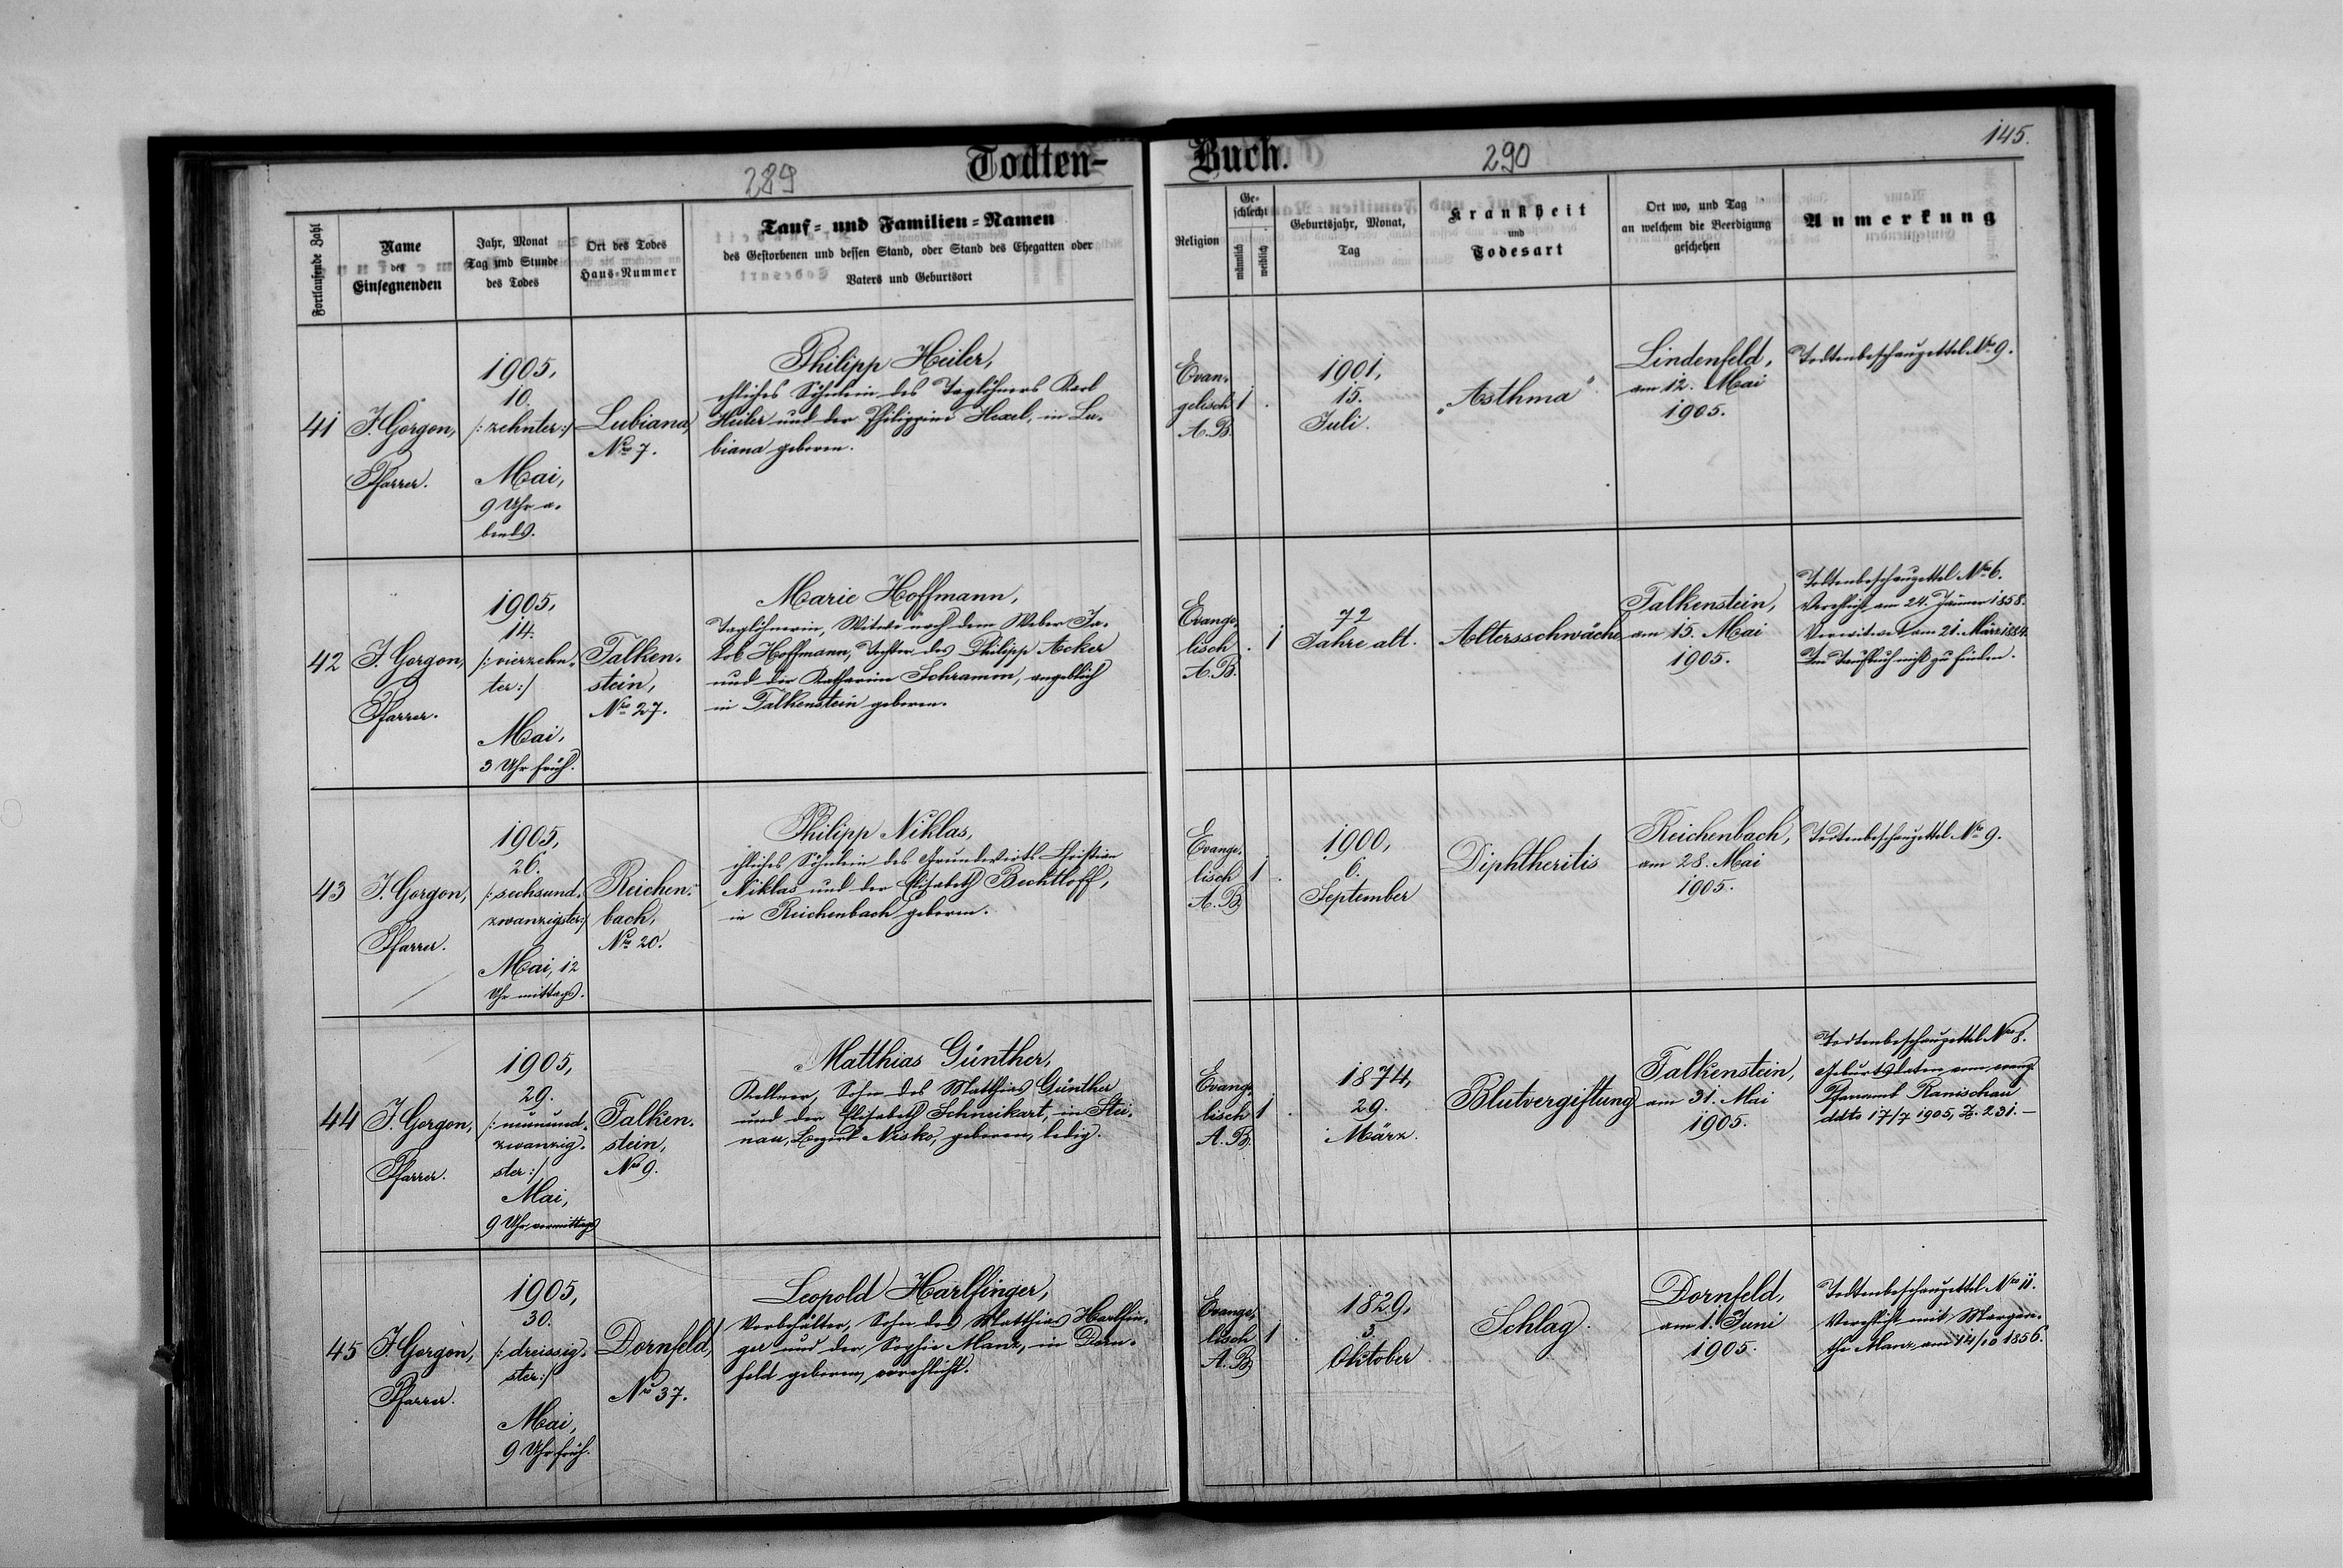 289
Todten-
Buch.
290
145.
Fortlaufende Zahl
Name
des
Einsegnenden
Jahr, Monat
Tag und Stunde
des Todes
Ort des Todes
Haus-Nummer
Tauf- und Familien-Namen
des Gestorbenen und dessen Stand, oder Stand des Ehegatten oder
Vaters und Geburtsort
Religion
Ge-
schlecht
männlich
weiblich
Geburtsjahr, Monat,
Tag
Krankheit
und
Todesart
Ort wo, und Tag
an welchem die Beerdigung
geschehen
Anmerkung
41
J. Gorgon,
Pfarrer.
1905,
10.
/: zehnter :/
Mai,
9 Uhr a-
bends.
Lubiana,
Nro 7.
Philipp Heiler,
eheliches Söhnlein des Taglöhners Karl
Heiler und der Philippine Hexel, in Lu-
biana geboren.
Evan-
gelisch
A. B.
1
1901,
15.
Juli.
"Asthma"
Lindenfeld,
am 12. Mai
1905.
Todtenbeschauzettel Nro 9.
42
J. Gorgon,
Pfarrer.
1905,
14.
/: vierzehn-
ter :/
Mai,
3 Uhr früh.
Falken-
stein,
Nro 27.
Marie Hoffmann,
Taglöhnerin, Witwe nach dem Weber Ja-
kob Hoffmann, Tochter des Philipp Acker
und der Katharina Schramm, angeblich
in Falkenstein geboren.
Evange-
lisch
A. B.
1
72
Jahre alt.
Altersschwäche
Falkenstein,
am 15. Mai
1905.
Todtenbeschauzettel Nro 6.
Verehlicht am 24. Jänner 1858.
Verwitwet am 21. März 1884.
Im Taufbuch nicht zu finden.
43
J. Gorgon,
Pfarrer.
1905,
26.
/: sechsund-
zwanzigster :/
Mai, 12
Uhr mittags.
Reichen-
bach,
Nro 20.
Philipp Niklas,
eheliches Söhnlein des Grundwirts Christian
Niklas und der Elisabeth Bechtloff,
in Reichenbach geboren.
Evange-
lisch
A. B.
1
1900,
6.
September
Diphtheritis
Reichenbach,
am 28. Mai
1905.
Todtenbeschauzettel Nro 9.
44
J. Gorgon,
Pfarrer.
1905,
29.
/: neunund-
zwanzig-
ster :/
Mai,
9 Uhr vormittags
Falken-
stein,
Nro 9.
Matthias Günther,
Kellner, Sohn des Matthias Günther
und der Elisabeth Schneikart, in Stei-
nau, Bezirk Nisko, geboren, ledig.
Evange-
lisch
A. B.
1
1874,
29.
März.
Blutvergiftung
Falkenstein,
am 31. Mai
1905.
Todtenbeschauzettel Nro 8.
Geburtsdaten vom evang.
Pfarramt Ranischau
ddto 17/7 1905, Z. 231. –
45
J. Gorgon,
Pfarrer.
1905,
30.
/: dreissig-
ster :/
Mai,
9 Uhr früh.
Dornfeld,
Nro 37.
Leopold Harlfinger,
Vorbehälter, Sohn des Matthias Harlfin-
ger und der Sophie Manz, in Dorn-
feld geboren, verehlicht.
Evange-
lisch
A. B.
1
1829,
3.
Oktober
Schlag.
Dornfeld,
am 1. Juni
1905.
Todtenbeschauzettel Nro 11.
Verehlicht mit Margare-
the Manz am 14/10 1856.